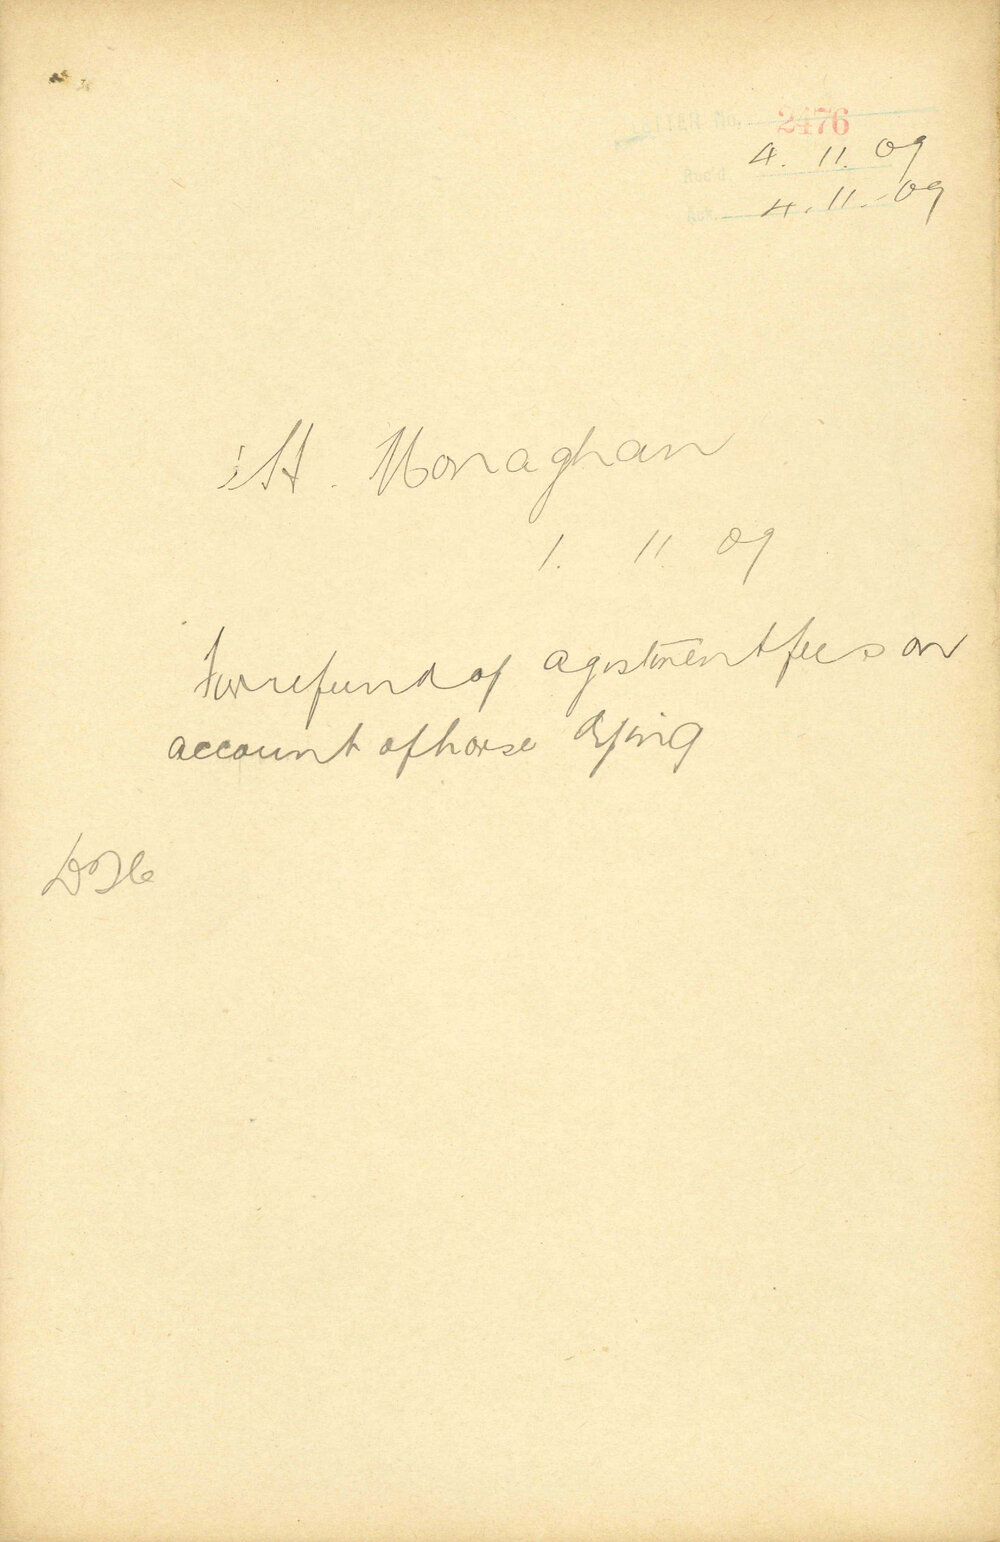 LETTER No. 2476
Rec'd 4. 11. 09
Ack. 4. 11. 09
H. Monaghan
1. 11 09
For refund of agistment fees on
account of horse dying